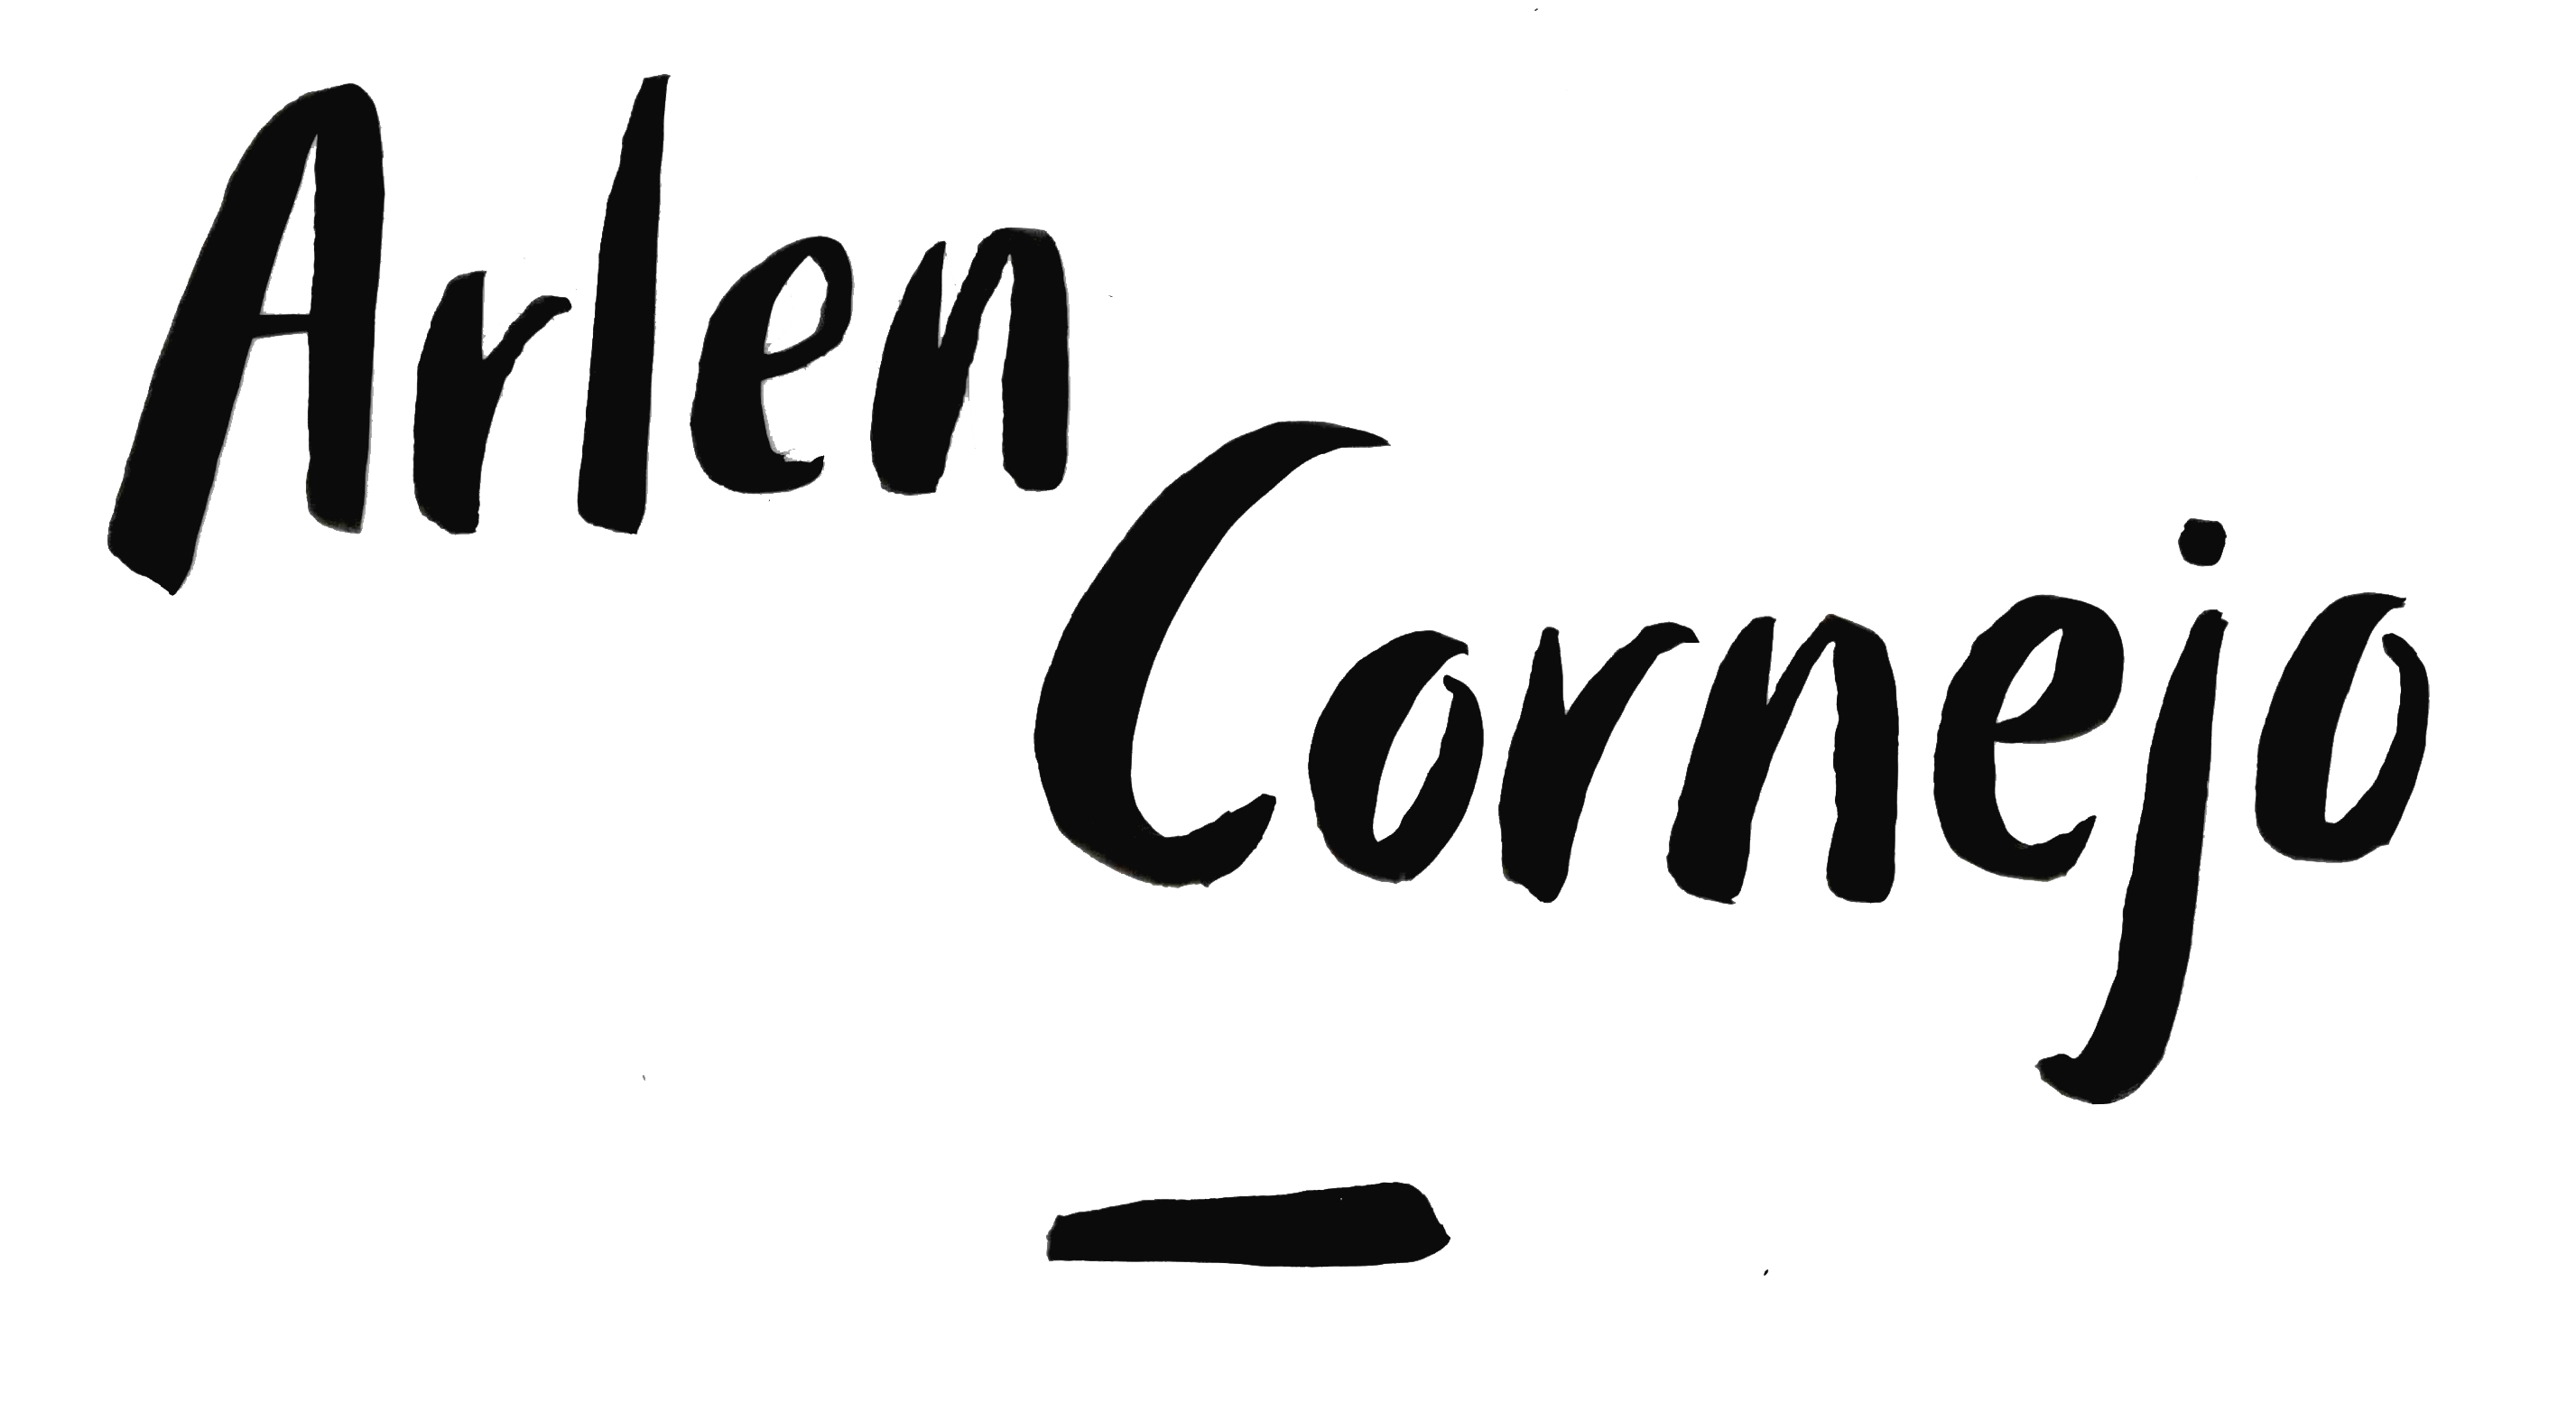 Arlen
Cornejo